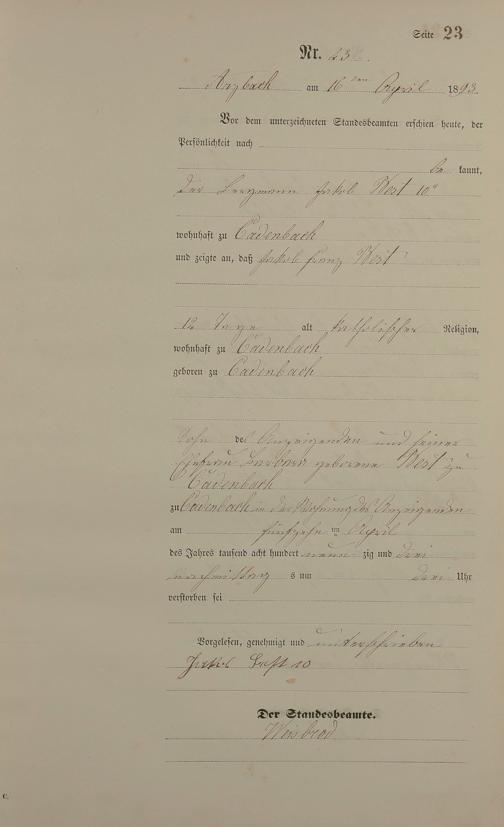 Seite 23
Nr. 23.
Arzbach am 16ten April 1893.
Vor dem unterzeichneten Standesbeamten erschien heute, der
Persönlichkeit nach
be kannt,
der Bergmann Jakob West 10r
wohnhaft zu Cadenbach
und zeigte an, daß Jakob Franz West
12 Tage alt katholischer Religion,
wohnhaft zu Cadenbach
geboren zu Cadenbach
Sohn des Anzeigenden und seiner
Ehefrau Barbara geborene West zu
Cadenbach
zu Cadenbach in der Wohnung des Anzeigenden
am fünfzehn ten April
des Jahres tausend acht hundert neun zig und drei
nachmittag s um drei Uhr
verstorben sei
Vorgelesen, genehmigt und unterschrieben
Jakob 10
Der Standesbeamte.
Weisbrod
C.